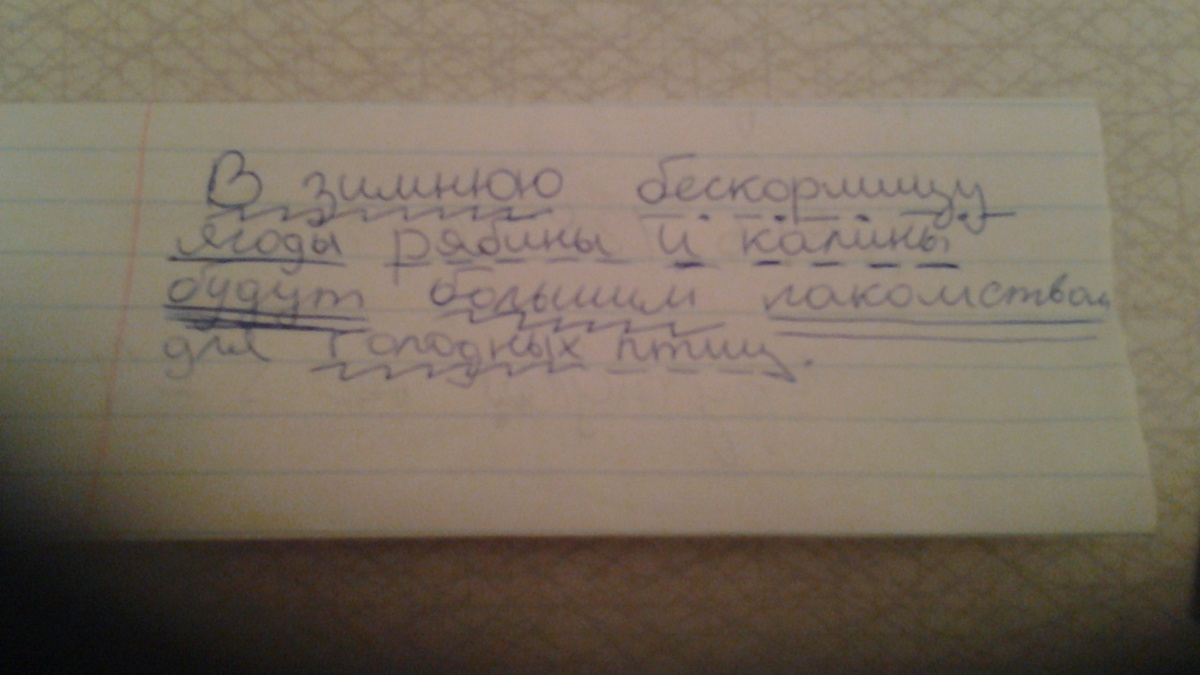 В зимнюю бескормицу
ягоды рябины и калины
будут большим лакомством
для голодных птиц.